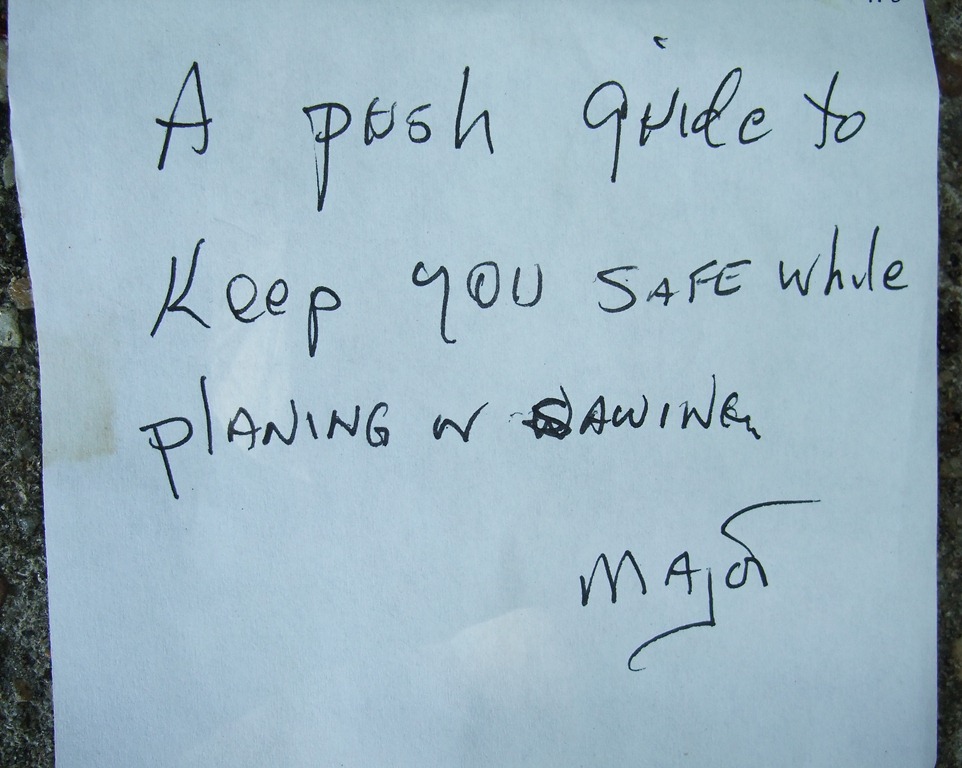 A push guide to
Keep YOU SAFE while
plANING or SAWING.
MAjor